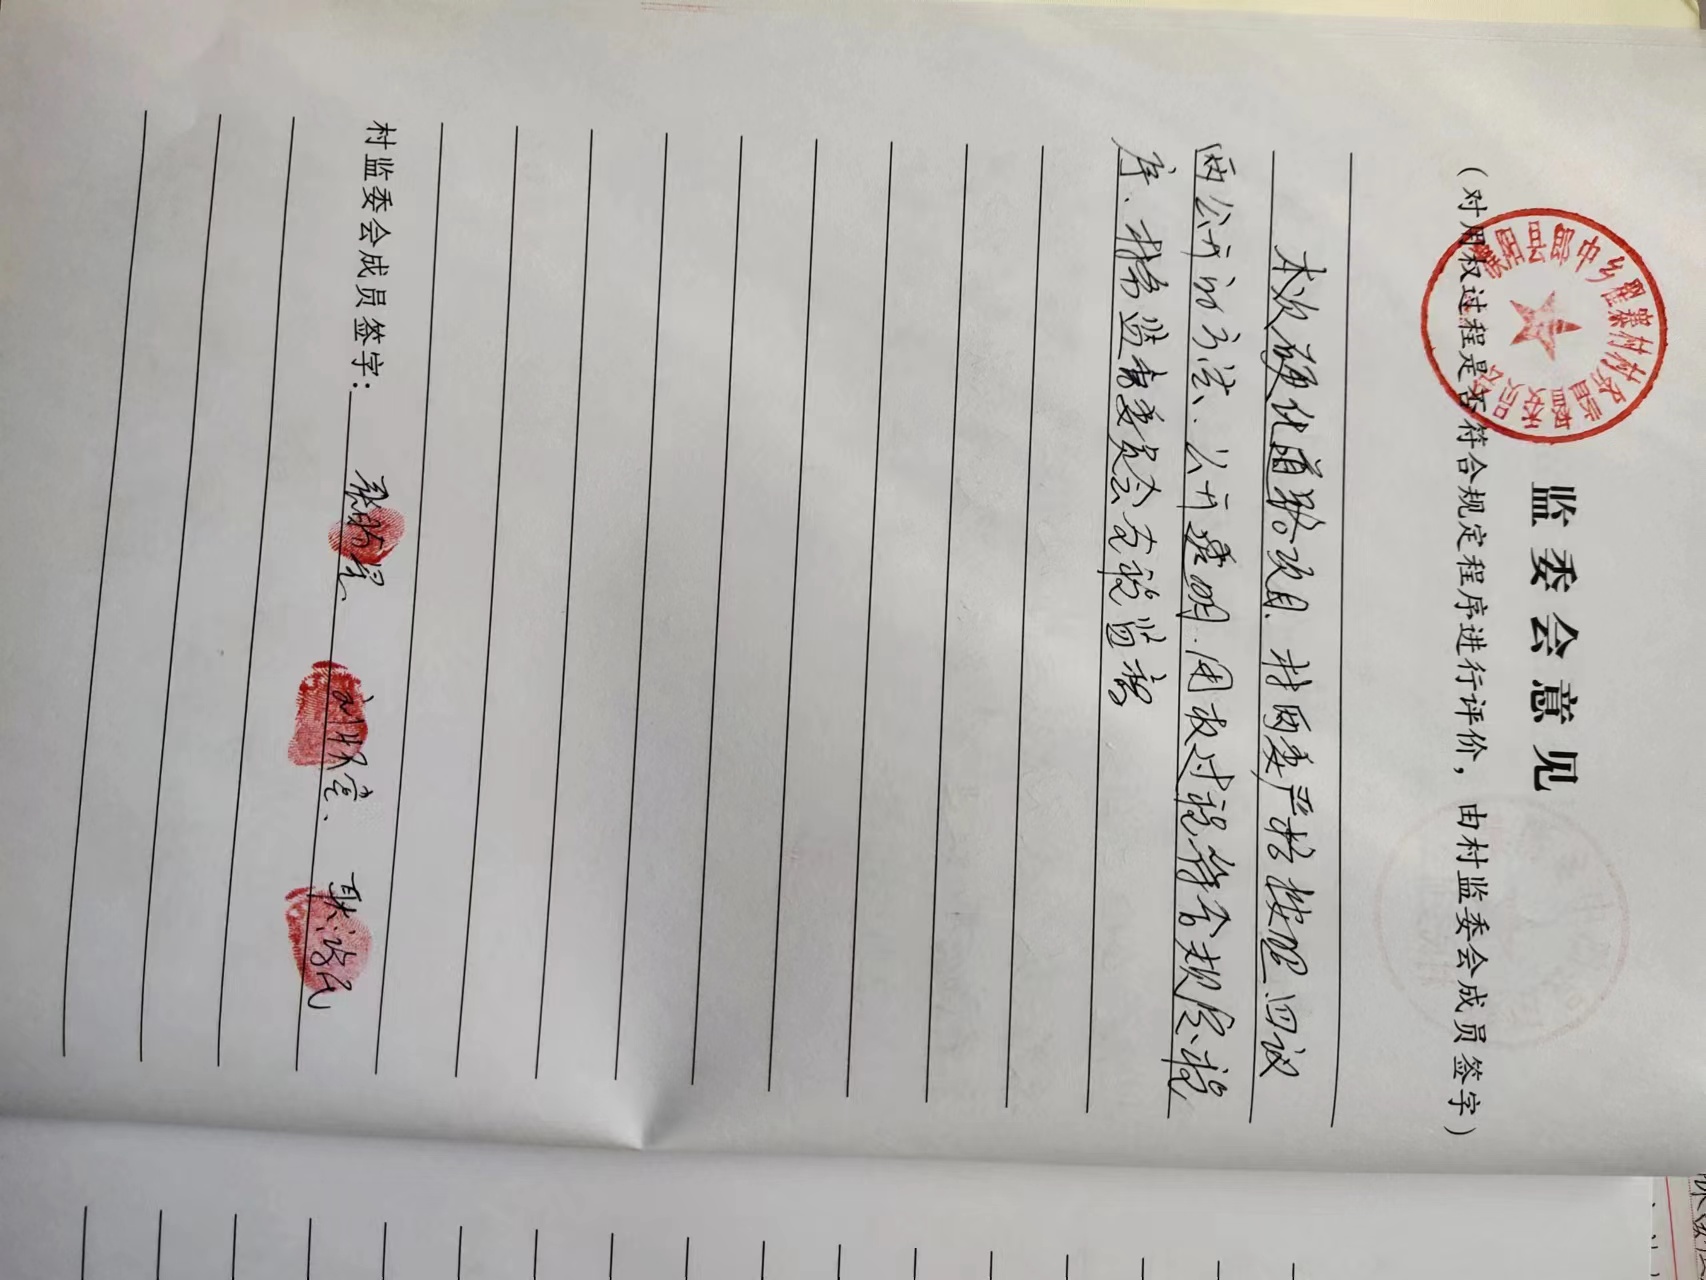 监委会意见
（对用权过程是否符合规定程序进行评价，由村监委会成员签字）
濮阳县郎中乡翟寨村村务监督委员会
本次硬化道路项目、村两委严格按照四议
两公开的方法、公开透明、用权过程符合规定程
序、接受监督委员会全程监督
村监委会成员签字：